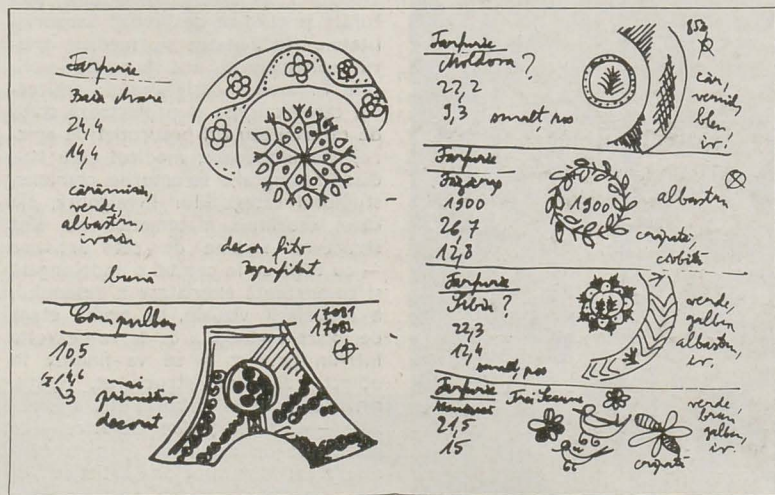 Farfurie
Baia Mare
24,4
14,4
cărămiziu,
verde,
albastru,
ivoriu
decor fito
zgrafitat
bună
17081
17082
10,5
mai
primitiv
decorat
Farfurie
Moldova ?
22,2
9,3 smalț, pos
căr,
verde,
bleu,
iv.
Farfurie
Făgăraș
1900
26,7
12,8
1900
albastru
ciopată,
ciobită
Farfurie
Sibiu ?
22,3
12,4
smalț, pos
verde,
galben
albastru,
iv.
Farfurie Trei Scaune
21,5
15
ciopată
verde,
brun
galben,
iv.